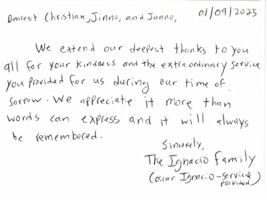 01/09/2025
Dearest Christian, Jinno, and Juano,
We extend our deepest thanks to you
all for your kindness and the extraordinary service
you provided for us during our time of
sorrow. We appreciate it more than
words can express and it will always
be remembered.
Sincerely,
The Ignacio Family
(Oscar Ignacio - service
provided)